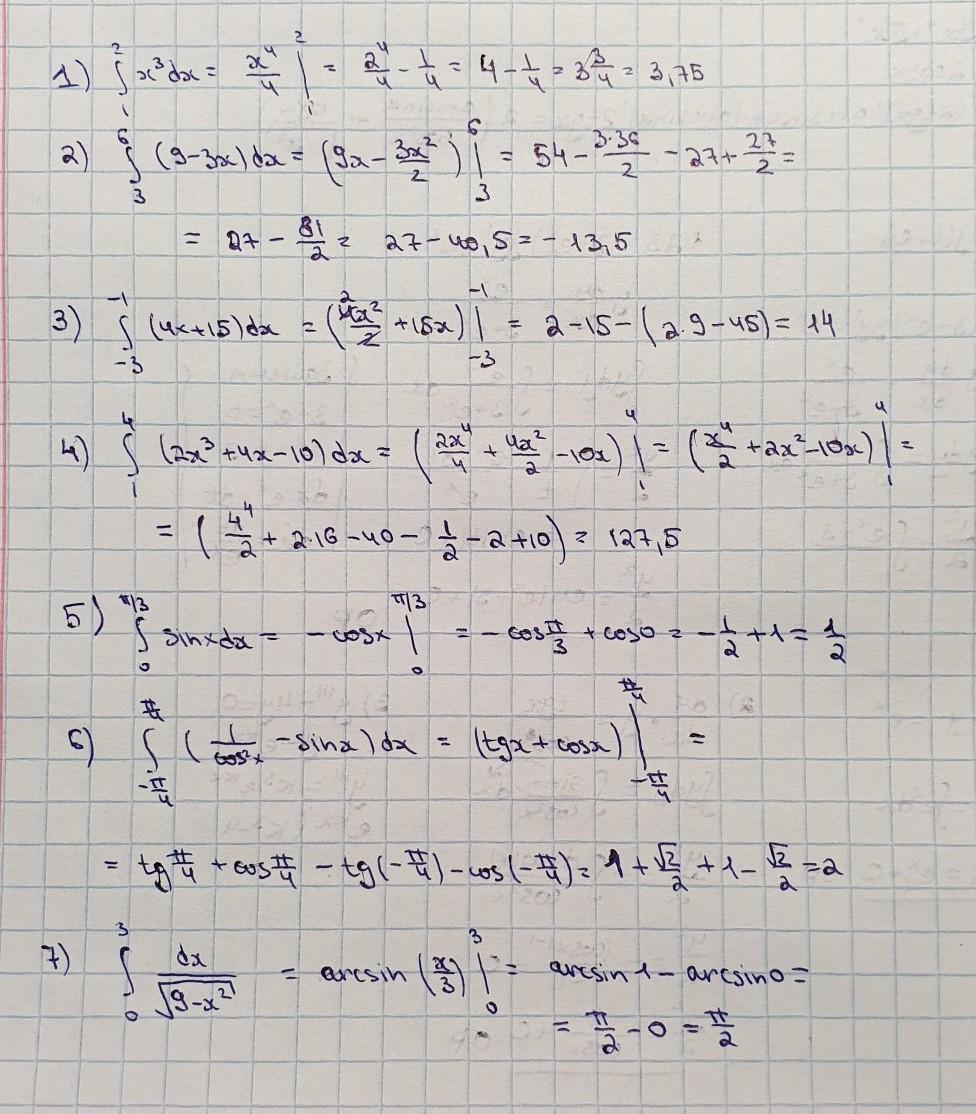 1) ∫₁² x³dx = x⁴/4 |₁² = 2⁴/4 - 1/4 = 4 - 1/4 = 3 3/4 = 3,75
2) ∫₃⁶ (9-3x)dx = (9x - 3x²/2) |₃⁶ = 54 - 3·36/2 - 27 + 27/2 =
= 27 - 81/2 = 27 - 40,5 = -13,5
3) ∫₋₃⁻¹ (4x+15)dx = (4x²/2 + 15x) |₋₃⁻¹ = 2 - 15 - (2·9 - 45) = 14
4) ∫₁⁴ (2x³+4x-10)dx = (2x⁴/4 + 4x²/2 - 10x) |₁⁴ = (x⁴/2 + 2x² - 10x) |₁⁴ =
= (4⁴/2 + 2·16 - 40 - 1/2 - 2 + 10) = 127,5
5) ∫₀^(π/3) sinxdx = -cosx |₀^(π/3) = -cos π/3 + cos0 = -1/2 + 1 = 1/2
6) ∫_(-π/4)^(π/4) (1/cos²x - sinx)dx = (tgx + cosx) |_(-π/4)^(π/4) =
= tg π/4 + cos π/4 - tg(-π/4) - cos(-π/4) = 1 + √2/2 + 1 - √2/2 = 2
7) ∫₀³ dx/√(9-x²) = arcsin(x/3) |₀³ = arcsin1 - arcsin0 =
= π/2 - 0 = π/2